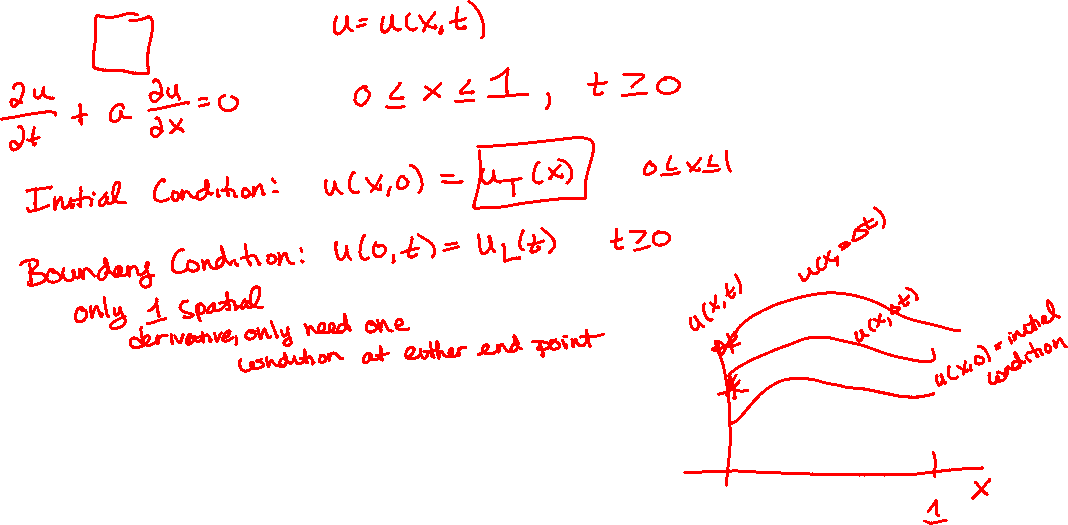 u = u(x,t)
∂u/∂t + a ∂u/∂x = 0
0 ≤ x ≤ 1, t ≥ 0
Initial Condition: u(x,0) = u_T(x) 0 ≤ x ≤ 1
Boundary Condition: u(0,t) = u_L(t) t ≥ 0
only 1 spatial
derivative, only need one
condition at either end point
u(x,t)
u(x,
u(x,Δt)
u(x,0) = initial
condition
1
x